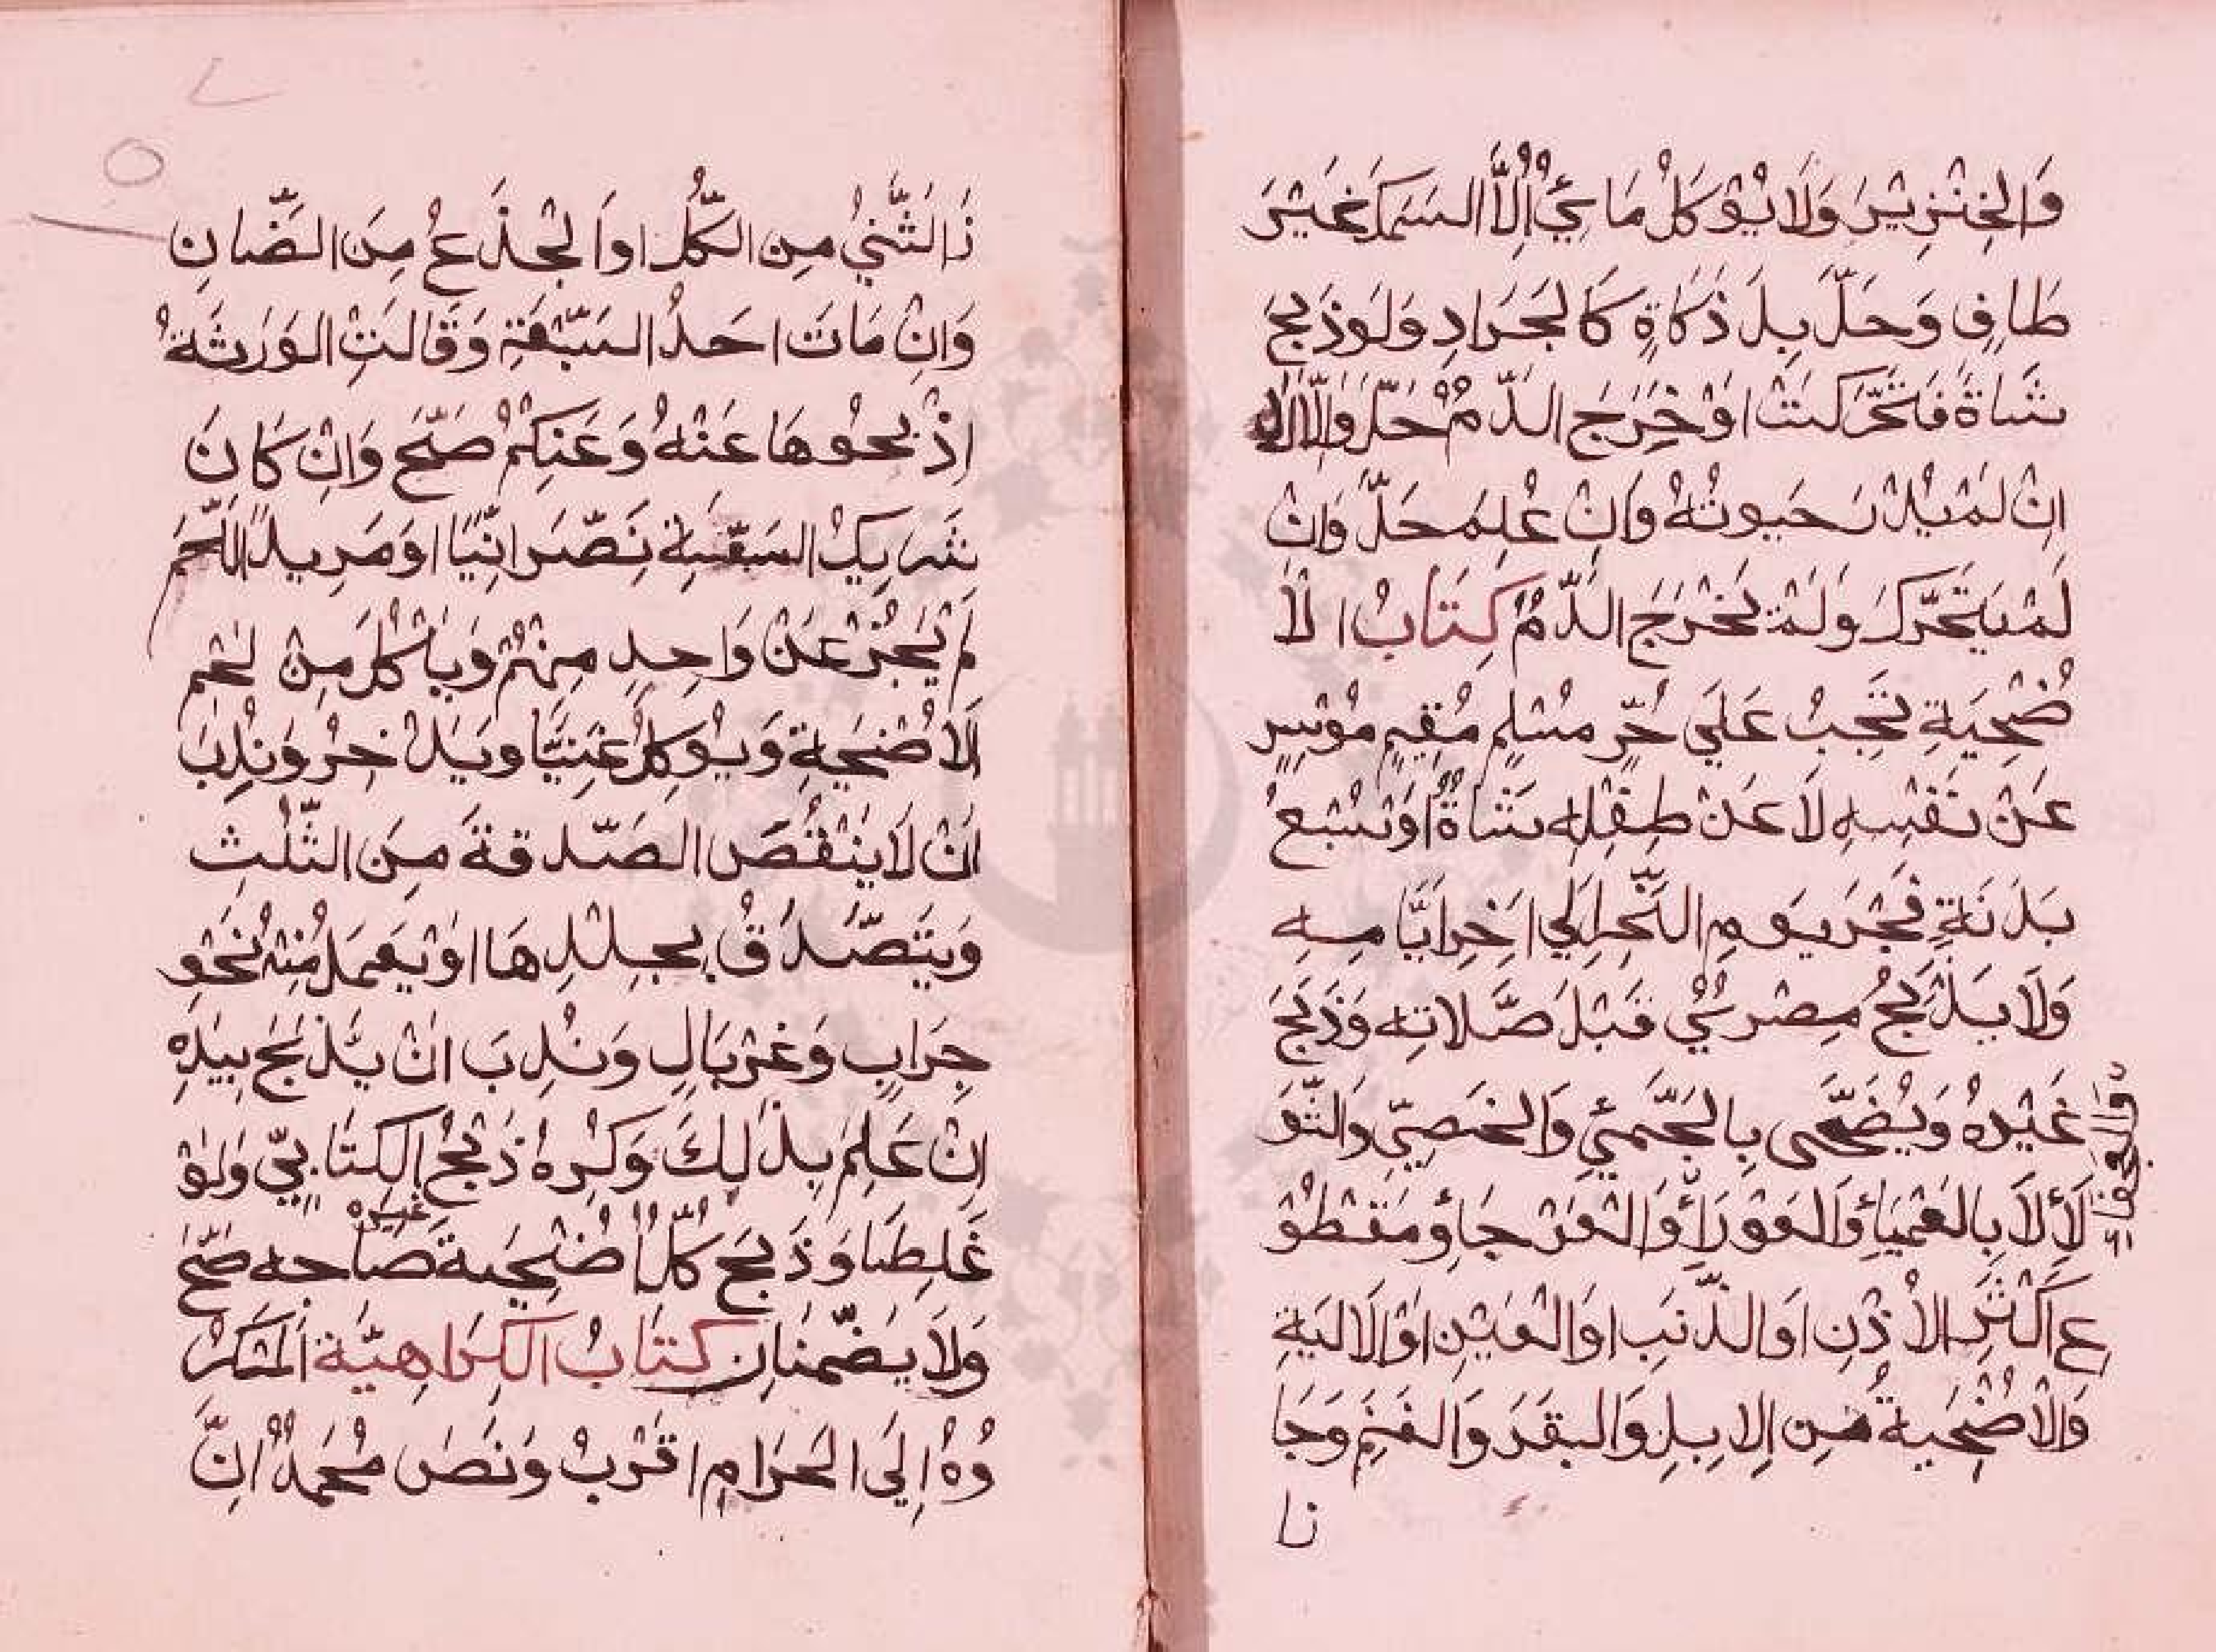 وَالخِنْزِيْرَ وَلَا يُؤْكَلُ مَائِيٌّ إِلَّا السَمَكَ غَيْرَ
طَافٍ وَحَلَّ بِلَ ذَكَاةٍ كَالجَرَادِ وَلَوْ ذَبَحَ
شَاةً فَتَحَرَّكَتْ اَوْ خَرَجَ الدَّمُ حَلَّ وَاِلَّا لَا
اِنْ لَمْ يُدْرَ حَيوتُهُ وَاِنْ عُلِمَ حَلَّ وَاِنْ
لَمْ يَتَحَرَّكَ وَلَمْ يَخْرَجَ الدَّمُ كِتَابُ الَا
ضْحِيَةِ تَجِبُ عَلَي حُرٍّ مُسْلِمٍ مُقِيْمٍ مُؤْسِرٍ
عَنْ نَفْسِهِ لَا عَنْ طِفْلِهِ شَاةٌ اَوْ سُبْعُ
بَدَنَةٍ فَجْرَ يَومِ النَّحْرِ اِلَي اَخِرِ اَيَّامِهِ
وَلَا يَذْبَحُ مِصْرِيٌّ قَبْلَ صَّلاتِهِ وَذَبَحَ
غَيْرُهُ وَيُضَحَّى بِالجَمَّئِ وَالخَصِيِّ وَالثَّو
لَاءِ لَا بِالعَمْيَاءِ وَالعَوْرَاءِ وَالعَرْجَاءِ وَمَقْطُوْ
وَالعجفاء
عِ اَكْثَرِ الاُذُنِ اَوِ الذَّنَبِ اَوِ العَيْنِ اَوْ الَالْيَةِ
وَالاُضْحِيَةُ مِنَ الاِبِلِ وَالبَقَرَ وَالغَنَمِ وَجَا
زا
زَ الثَّنِيُّ مِنَ الكُلِّ اوَالجَذَعُ مِنَ الضَّانِ
وَاِنْ مَاتَ اَحَدُ السَبْعَةِ وَقَالَتِ الوَرَثَةُ
اِذْبَحُوهَا عَنْهُ وَعَنْكُمْ صَحَّ وَاِنْ كَانَ
شَرِيكُ السَّبْعَةِ نَصَّرَانِيًّا اَوْ مَرِيدَ اللَّحْمَ
لَمْ يَجُزْ عَنْ وَاحِدٍ مِنْهُمْ وَيَاْكُلُ مِنْ لَحْمِ
الاُضْحِيَةِ وَيُؤكِلُ غَنِيًّا وَيَدَّخِرُ وَنُدِبَ
اَنْ لَا يَنْقُصَ الصَّدقةَ مِنَ الثُّلُثِ
وَيَتَصَّدَقُ بِجِلْدِهَا اَوْ يَعْمَلُ مُنِهُ نَحْوِ
جِرَابٍ وَغَرْبَالٍ وَنُدِبَ اَنْ يَّذْبَحَ بِيَدِهِ
اِنْ عَلِمَ بِذَلِكَ وَكُرِهُ ذَبْحُ الكِتَابِيِّ وَلَوْ
غَلِطَا وَذَبَحَ كُلٌّ اُضْحِيَةَ صَاحِبِه صَحَّ
غيره
وَلَا يَضْمَنَانِ كِتَابُ الكَرَاهِيَّةِ اَلمَكْرُ
وْهُ اِلَى الحَرَامِ اَقْرَبُ وَنَصَ مُحَمَدٌ اَنَّ